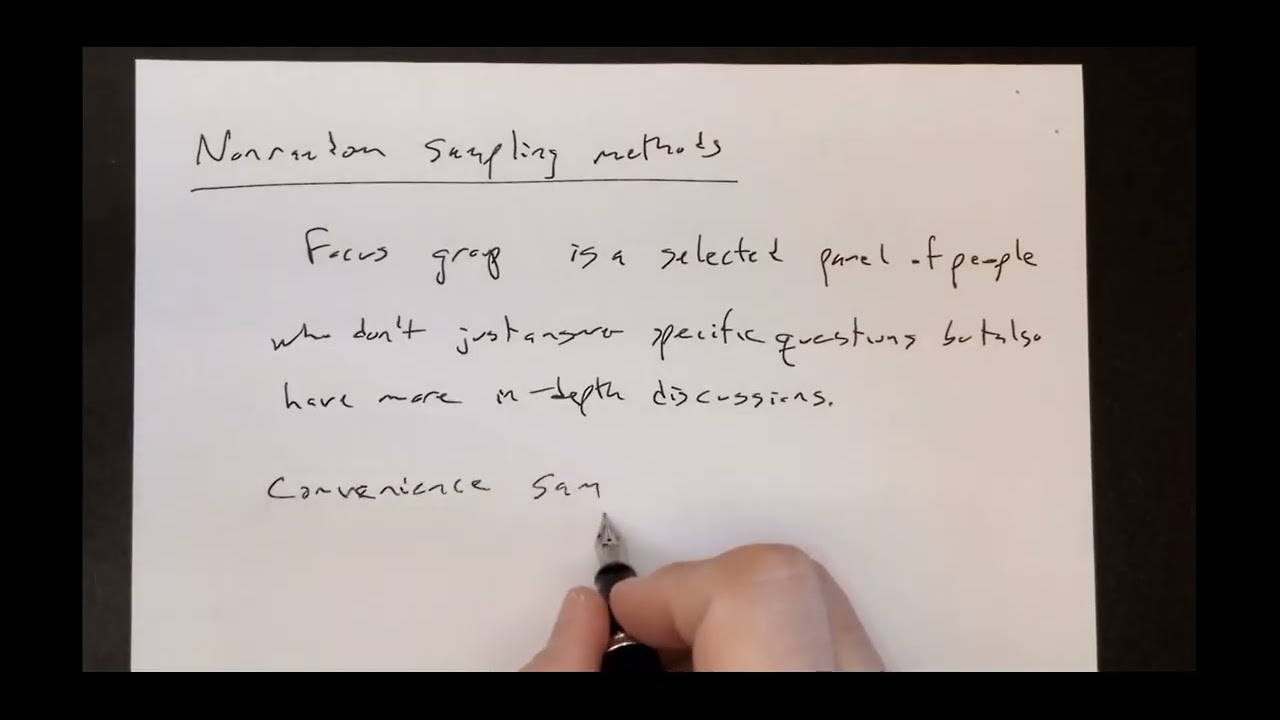 Nonrandom sampling methods
Focus group is a selected panel of people
who don't just answer specific questions but also
have more in-depth discussions.
Convenience sam